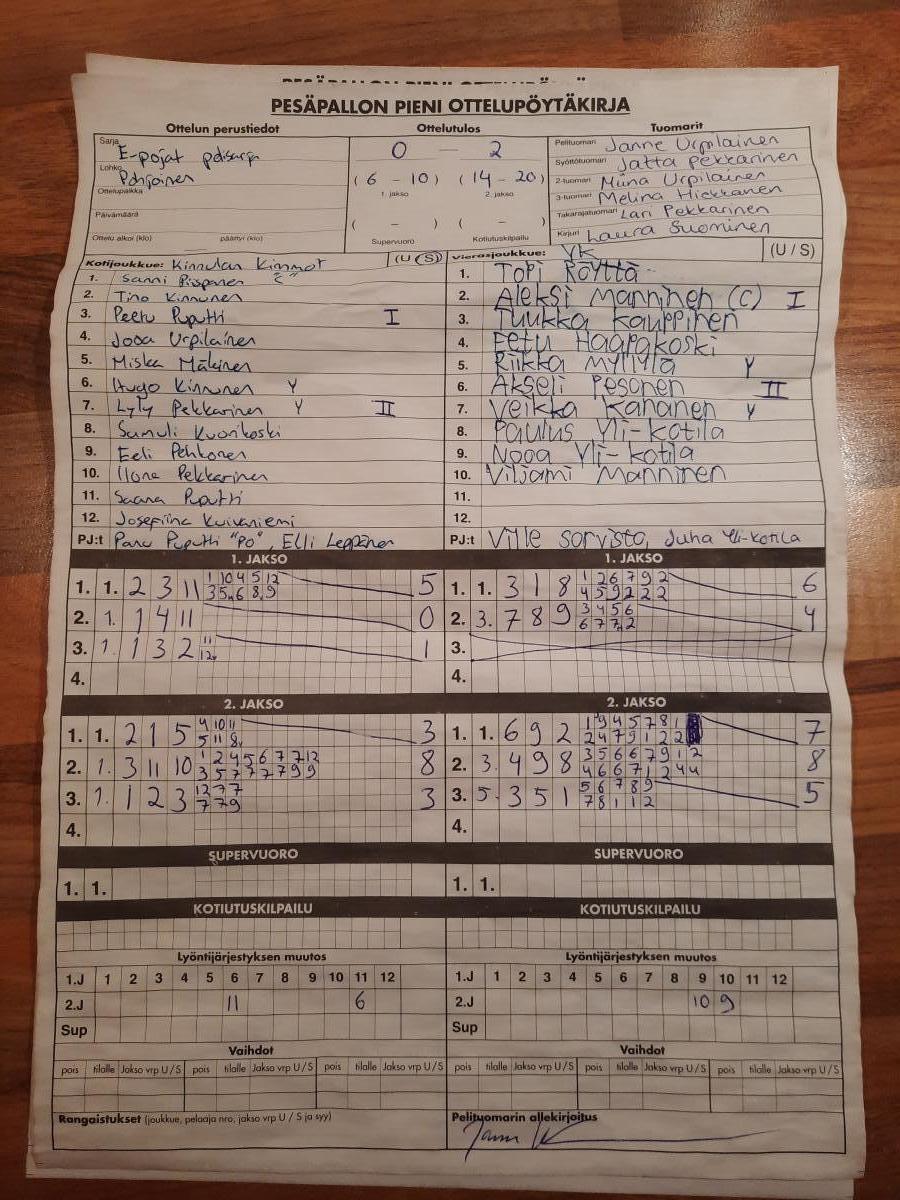 PESÄPALLON PIENI OTTELUPÖYTÄKIRJA
Ottelun perustiedot Ottelutulos Tuomarit
Sarja E-pojat
Lohko Pohjoinen
Ottelupaikka
Päivämäärä
Ottelu alkoi (klo) päättyi (klo)
0 — 2
( 6 - 10 ) ( 14 - 20 )
1. jakso 2. jakso
( - ) ( - )
Supervuoro Kotiutuskilpailu
Pelituomari Janne Urpilainen
Syöttötuomari Jatta Pekkarinen
2-tuomari Miina Urpilainen
3-tuomari Melina Hiekkanen
Takarajatuomari Lari Pekkarinen
Kirjuri Laura Suominen
Kotijoukkue: Kinnulan Kinnot (U / S)
1. Sanni Piispanen "C"
2. Tino Kinnunen
3. Peetu Puputti I
4. Jooa Urpilainen
5. Miska Mäkinen
6. Hugo Kinnunen Y
7. Lyly Pekkarinen Y II
8. Samuli Kuorikoski
9. Eeli Pehkonen
10. Ilona Pekkarinen
11. Saana Puputti
12. Josefiina Kuivaniemi
PJ:t Panu Puputti "PO", Elli Leppänen
Vierasjoukkue: YK (U / S)
1. Topi Röyttä
2. Aleksi Manninen (C) I
3. Tuukka Kauppinen
4. Eetu Haapakoski
5. Riikka Myllylä Y
6. Akseli Pesonen II
7. Veikka Kananen Y
8. Paulus Yli-Kotila
9. Nooa Yli-kotila
10. Viljami Manninen
11.
12.
PJ:t Ville Sorvisto, Juha Yli-Kotila
1. JAKSO 1. JAKSO
1. 1. 2 3 11 1 10 4 5 12 5
3 5 6 8 9
2. 1. 1 4 11 0
3. 1. 1 3 2 11 1
12
4.
1. 1. 3 1 8 1 2 6 7 9 2 6
4 5 9 2 2 2
2. 3. 7 8 9 3 4 5 6 4
6 7 7 2
3.
4.
2. JAKSO 2. JAKSO
1. 1. 2 1 5 4 10 11 3
5 11 8
2. 1. 3 11 10 1 2 4 5 6 7 7 12 8
3 5 7 7 7 7 9 9
3. 1. 1 2 3 12 7 7 3
7 7 9
4.
1. 1. 6 9 2 1 9 4 5 7 8 1 7
2 4 7 9 1 2 2
2. 3. 4 9 8 3 5 6 6 7 9 1 2 8
4 6 6 7 1 2 4 4
3. 5. 3 5 1 5 6 7 8 9 5
7 8 1 1 2
4.
SUPERVUORO SUPERVUORO
1. 1. 1. 1.
KOTIUTUSKILPAILU KOTIUTUSKILPAILU
Lyöntijärjestyksen muutos Lyöntijärjestyksen muutos
1.J 1 2 3 4 5 6 7 8 9 10 11 12 1.J 1 2 3 4 5 6 7 8 9 10 11 12
2.J 11 6 2.J 10 9
Sup Sup
Vaihdot Vaihdot
pois tilalle Jakso vrp U/S pois tilalle Jakso vrp U/S pois tilalle pois tilalle Jakso vrp U/S pois tilalle Jakso vrp U/S pois tilalle
Rangaistukset (joukkue, pelaaja nro, jakso vrp U / S ja syy) Pelituomarin allekirjoitus